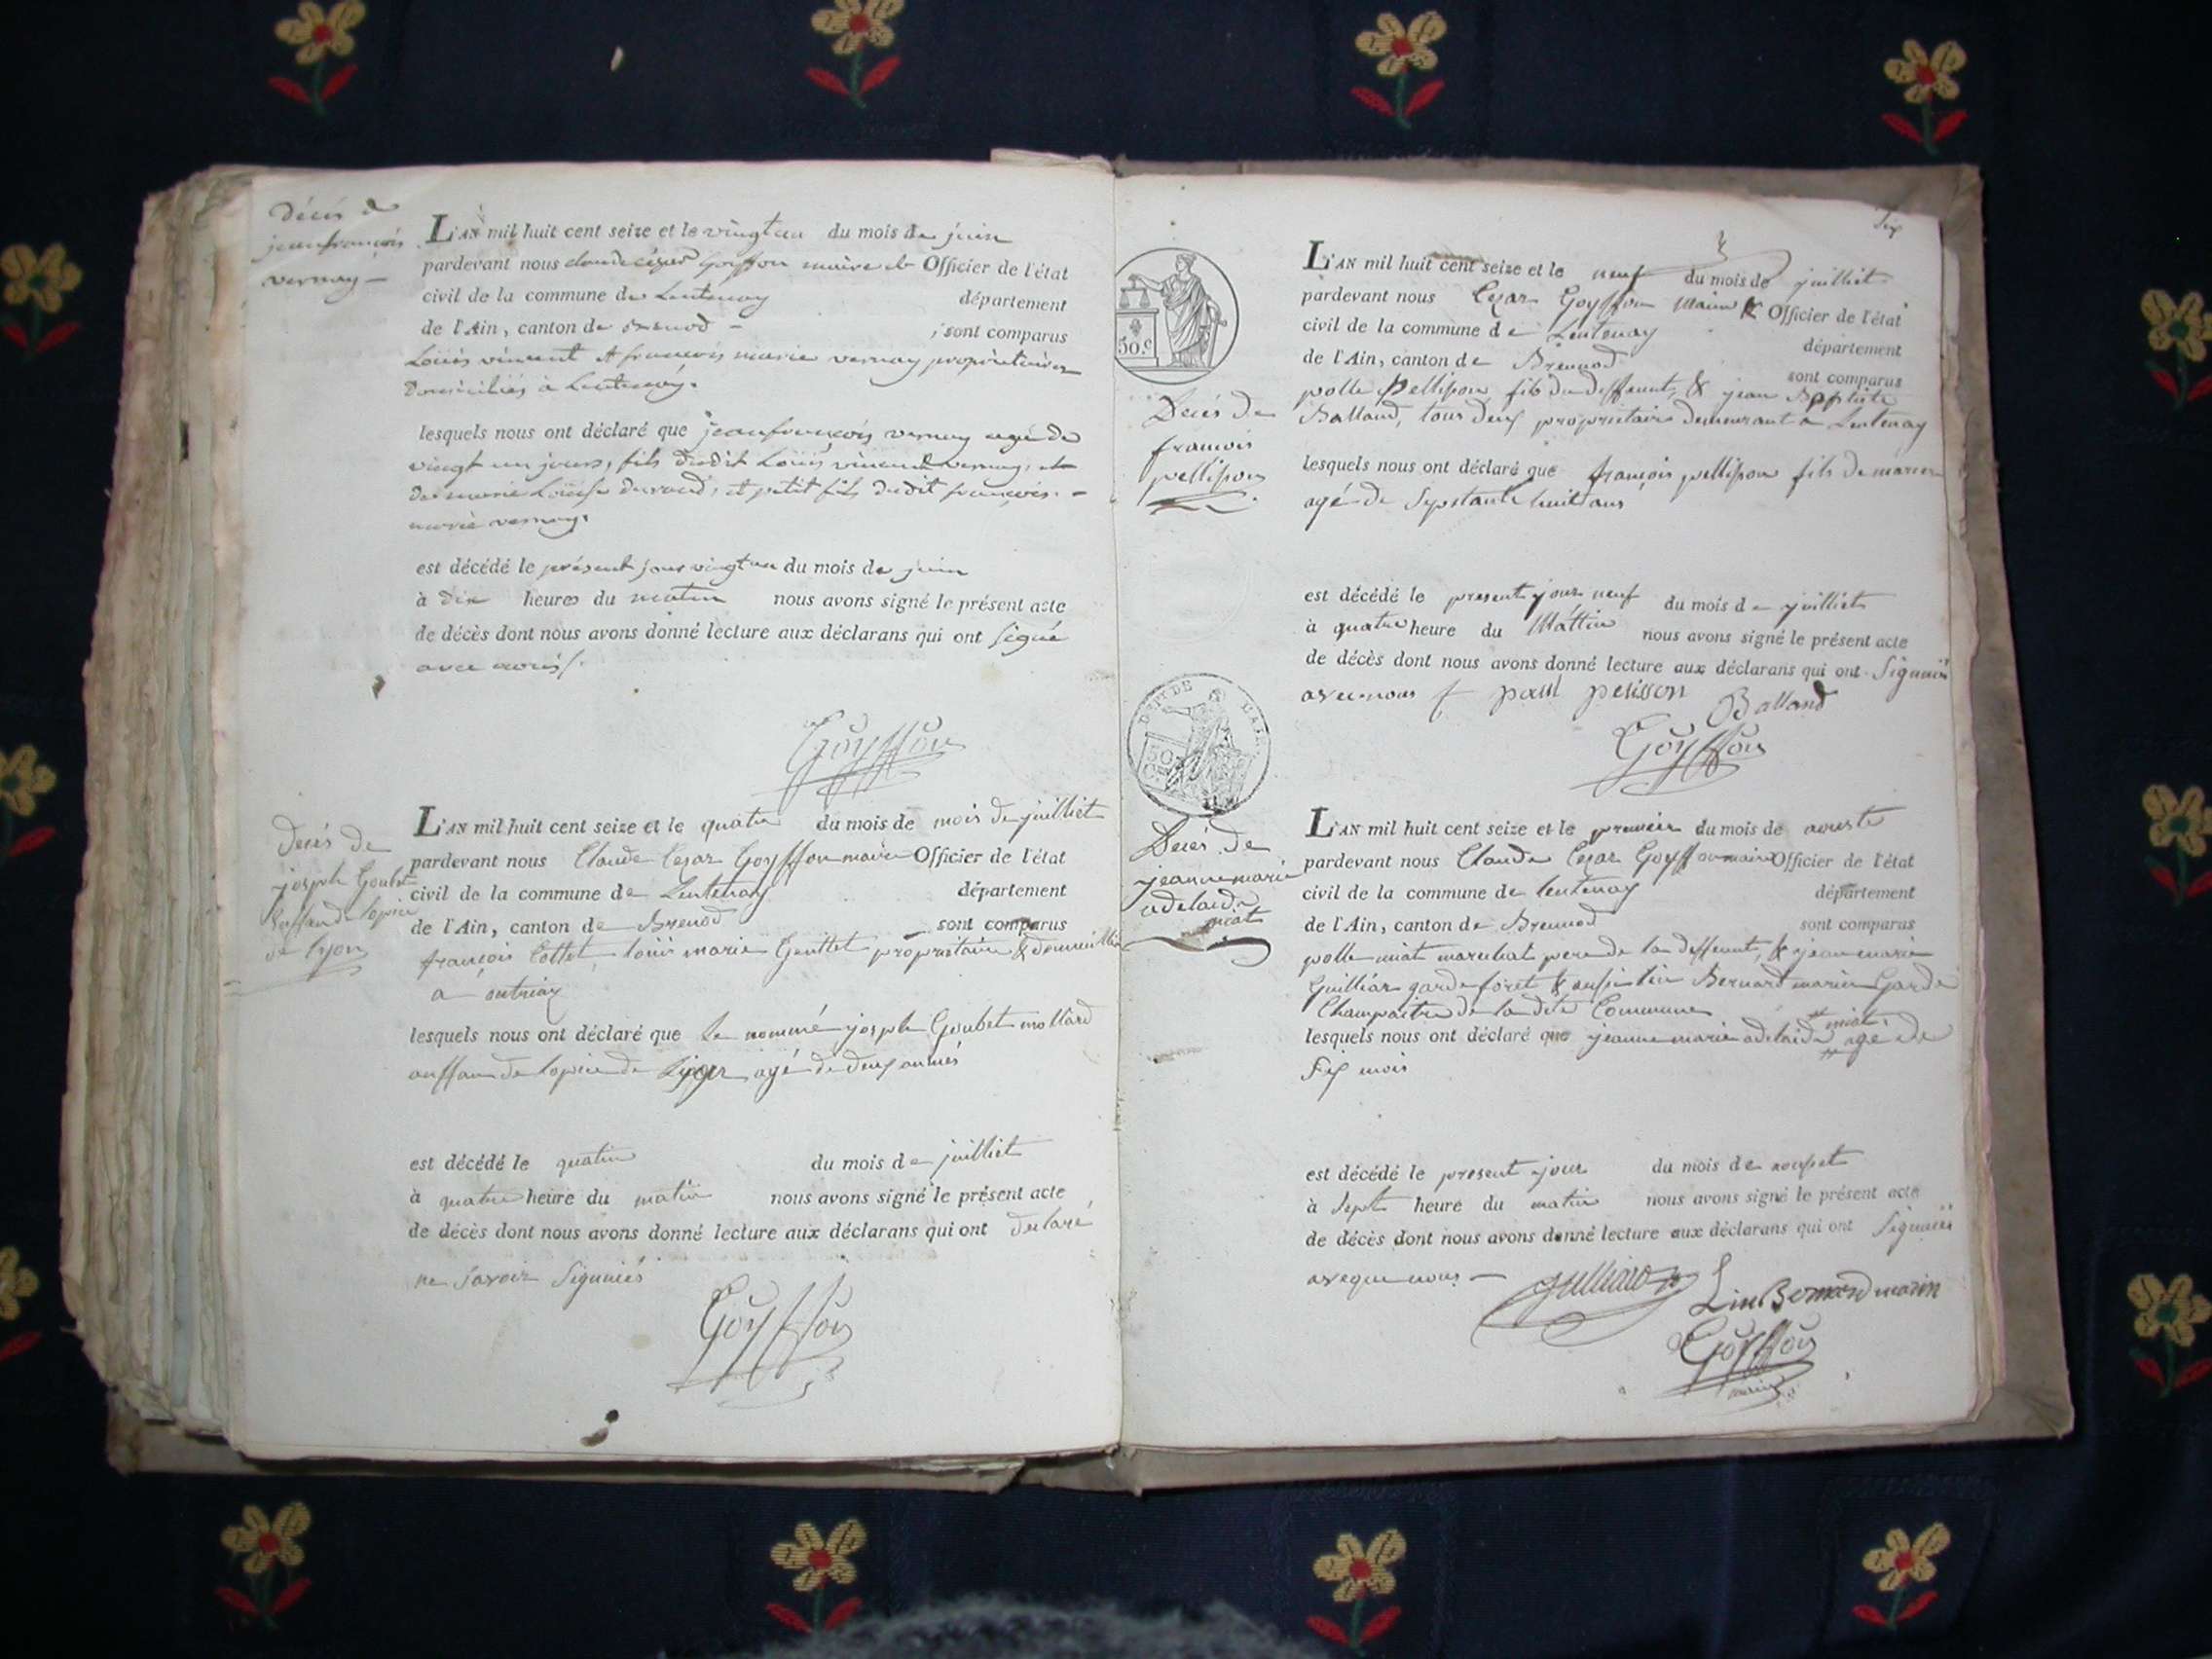 décès de
jeanfrançois
vernay
L'AN mil huit cent seize et le vingt un du mois de juin
pardevant nous claude cézar Goÿffon maire et Officier de l'état
civil de la commune de Lentenay département
de l'Ain, canton de brenod sont comparus
Loüis vincent et françois marie vernay propriétaires
domiciliés à Lentenay.
lesquels nous ont déclaré que jeanfrançois vernay agé de
vingt un jours, fils dudit Loüis vincent vernay, et
de marie Loüise durand, et petit fils dudit françois
marie vernay.
est décédé le présent jour vingt un du mois de juin
à dix heures du matin nous avons signé le présent acte
de décès dont nous avons donné lecture aux déclarans qui ont signé
avec
Goÿffon
Decés de
joseph Goubet
de lopice
de lyon
L'AN mil huit cent seize et le quatre du mois de mois de juilliet
pardevant nous Claude Cezar Goyffon maire Officier de l'état
civil de la commune de Lentenay département
de l'Ain, canton de Brenod sont comparus
françois Cottet louis marie Genittet propriétaire &
a outriaz
lesquels nous ont déclaré que le nommé joseph Goubet mollard
anffan de lopice de Lyon agé de deux annés
est décédé le quatre du mois de juilliet
à quatre heure du matin nous avons signé le présent acte
de décès dont nous avons donné lecture aux déclarans qui ont declaré
ne savoir signiés
Goÿffon
six
50.c
Decés de
francois
pellisson
L'AN mil huit cent seize et le neuf du mois de juilliet
pardevant nous Cezar Goyffon Maire & Officier de l'état
civil de la commune de Lentenay département
de l'Ain, canton de Brennod sont comparus
polle Pellisson fils du deffeunt, & jean Baptiste
Balland, tous deux propriétaire demeurant a Lentenay
lesquels nous ont déclaré que françois pellisson fils de
agé de Septante huit ans
est décédé le present jour neuf du mois de juilliet
à quatre heure du Mattin nous avons signé le présent acte
de décès dont nous avons donné lecture aux déclarans qui ont
avec nous paul pelisson
Balland
Goÿffon
DÉPT DE L'AIN
50 C.
Decés de
jeanne marie
adelaide
miat
L'AN mil huit cent seize et le premier du mois de aouste
pardevant nous Claude Cezar Goyffon maire Officier de l'état
civil de la commune de lentenay département
de l'Ain, canton de Brennod sont comparus
polle miat marechat pere de la deffeunt, & jean marie
Guilliar garde foret & Bernard marin Garde
Champaitre de la dite Commune
lesquels nous ont déclaré que jeanne marie adelaide miat agé de
six mois
est décédé le present jour du mois de
à sept heure du matin nous avons signé le présent acte
de décès dont nous avons donné lecture aux déclarans qui ont
aveque nous
Lin Bernard marin
Goÿffon
maire